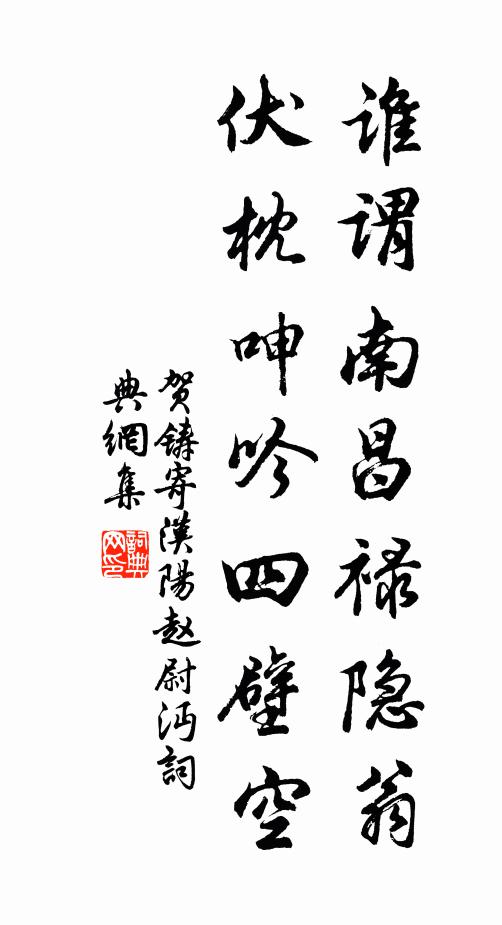 谁谓南昌禄隐翁
伏枕呻吟四壁空
贺鑄寄漢陽赵尉沔詞
典網集
詞典网印